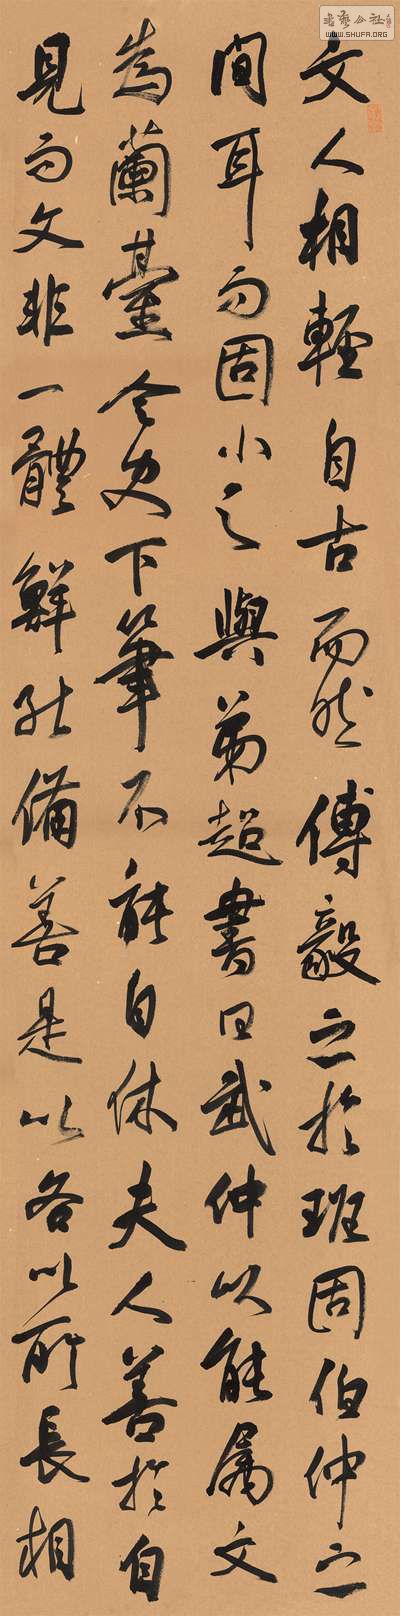 文人相輕自古而然傅毅之於班固伯仲之
間耳而固小之與弟超書曰武仲以能屬文
為蘭臺令史下筆不能自休夫人善於自
見而文非一體鮮能備善是以各以所長相
書藝公社
WWW.SHUFA.ORG